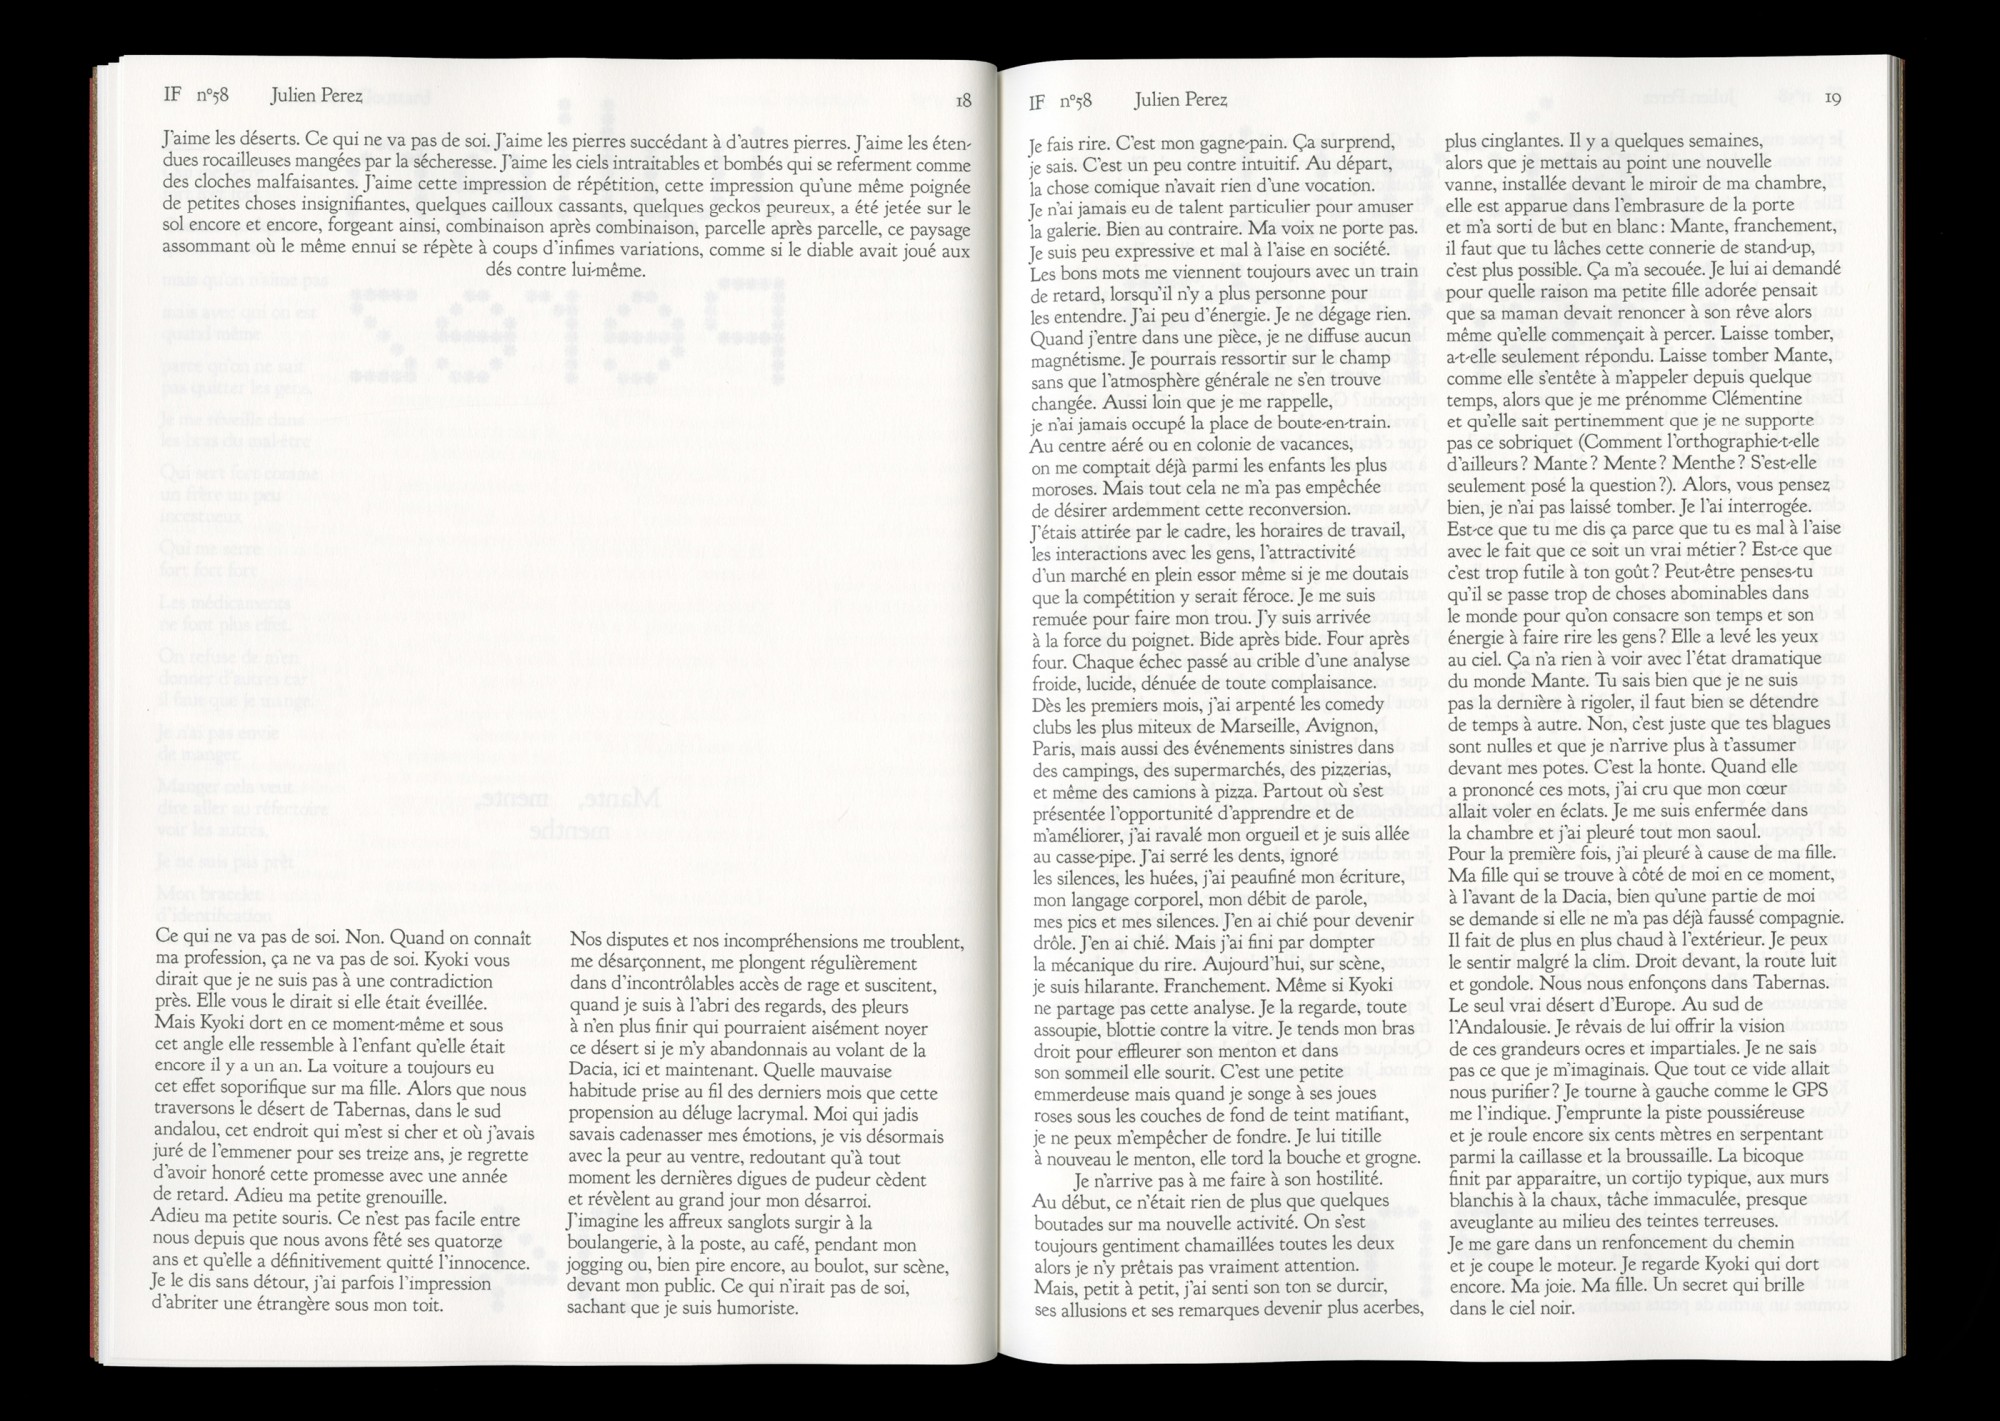 IF n°58 Julien Perez 18
J'aime les déserts. Ce qui ne va pas de soi. J'aime les pierres succédant à d'autres pierres. J'aime les éten-
dues rocailleuses mangées par la sécheresse. J'aime les ciels intraitables et bombés qui se referment comme
des cloches malfaisantes. J'aime cette impression de répétition, cette impression qu'une même poignée
de petites choses insignifiantes, quelques cailloux cassants, quelques geckos peureux, a été jetée sur le
sol encore et encore, forgeant ainsi, combinaison après combinaison, parcelle après parcelle, ce paysage
assommant où le même ennui se répète à coups d'infimes variations, comme si le diable avait joué aux
dés contre lui-même.
Ce qui ne va pas de soi. Non. Quand on connaît
ma profession, ça ne va pas de soi. Kyoki vous
dirait que je ne suis pas à une contradiction
près. Elle vous le dirait si elle était éveillée.
Mais Kyoki dort en ce moment-même et sous
cet angle elle ressemble à l'enfant qu'elle était
encore il y a un an. La voiture a toujours eu
cet effet soporifique sur ma fille. Alors que nous
traversons le désert de Tabernas, dans le sud
andalou, cet endroit qui m'est si cher et où j'avais
juré de l'emmener pour ses treize ans, je regrette
d'avoir honoré cette promesse avec une année
de retard. Adieu ma petite grenouille.
Adieu ma petite souris. Ce n'est pas facile entre
nous depuis que nous avons fêté ses quatorze
ans et qu'elle a définitivement quitté l'innocence.
Je le dis sans détour, j'ai parfois l'impression
d'abriter une étrangère sous mon toit.
Nos disputes et nos incompréhensions me troublent,
me désarçonnent, me plongent régulièrement
dans d'incontrôlables accès de rage et suscitent,
quand je suis à l'abri des regards, des pleurs
à n'en plus finir qui pourraient aisément noyer
ce désert si je m'y abandonnais au volant de la
Dacia, ici et maintenant. Quelle mauvaise
habitude prise au fil des derniers mois que cette
propension au déluge lacrymal. Moi qui jadis
savais cadenasser mes émotions, je vis désormais
avec la peur au ventre, redoutant qu'à tout
moment les dernières digues de pudeur cèdent
et révèlent au grand jour mon désarroi.
J'imagine les affreux sanglots surgir à la
boulangerie, à la poste, au café, pendant mon
jogging ou, bien pire encore, au boulot, sur scène,
devant mon public. Ce qui n'irait pas de soi,
sachant que je suis humoriste.
IF n°58 Julien Perez 19
Je fais rire. C'est mon gagne-pain. Ça surprend,
je sais. C'est un peu contre intuitif. Au départ,
la chose comique n'avait rien d'une vocation.
Je n'ai jamais eu de talent particulier pour amuser
la galerie. Bien au contraire. Ma voix ne porte pas.
Je suis peu expressive et mal à l'aise en société.
Les bons mots me viennent toujours avec un train
de retard, lorsqu'il n'y a plus personne pour
les entendre. J'ai peu d'énergie. Je ne dégage rien.
Quand j'entre dans une pièce, je ne diffuse aucun
magnétisme. Je pourrais ressortir sur le champ
sans que l'atmosphère générale ne s'en trouve
changée. Aussi loin que je me rappelle,
je n'ai jamais occupé la place de boute-en-train.
Au centre aéré ou en colonie de vacances,
on me comptait déjà parmi les enfants les plus
moroses. Mais tout cela ne m'a pas empêchée
de désirer ardemment cette reconversion.
J'étais attirée par le cadre, les horaires de travail,
les interactions avec les gens, l'attractivité
d'un marché en plein essor même si je me doutais
que la compétition y serait féroce. Je me suis
remuée pour faire mon trou. J'y suis arrivée
à la force du poignet. Bide après bide. Four après
four. Chaque échec passé au crible d'une analyse
froide, lucide, dénuée de toute complaisance.
Dès les premiers mois, j'ai arpenté les comedy
clubs les plus miteux de Marseille, Avignon,
Paris, mais aussi des événements sinistres dans
des campings, des supermarchés, des pizzerias,
et même des camions à pizza. Partout où s'est
présentée l'opportunité d'apprendre et de
m'améliorer, j'ai ravalé mon orgueil et je suis allée
au casse-pipe. J'ai serré les dents, ignoré
les silences, les huées, j'ai peaufiné mon écriture,
mon langage corporel, mon débit de parole,
mes pics et mes silences. J'en ai chié pour devenir
drôle. J'en ai chié. Mais j'ai fini par dompter
la mécanique du rire. Aujourd'hui, sur scène,
je suis hilarante. Franchement. Même si Kyoki
ne partage pas cette analyse. Je la regarde, toute
assoupie, blottie contre la vitre. Je tends mon bras
droit pour effleurer son menton et dans
son sommeil elle sourit. C'est une petite
emmerdeuse mais quand je songe à ses joues
roses sous les couches de fond de teint matifiant,
je ne peux m'empêcher de fondre. Je lui titille
à nouveau le menton, elle tord la bouche et grogne.
Je n'arrive pas à me faire à son hostilité.
Au début, ce n'était rien de plus que quelques
boutades sur ma nouvelle activité. On s'est
toujours gentiment chamaillées toutes les deux
alors je n'y prêtais pas vraiment attention.
Mais, petit à petit, j'ai senti son ton se durcir,
ses allusions et ses remarques devenir plus acerbes,
plus cinglantes. Il y a quelques semaines,
alors que je mettais au point une nouvelle
vanne, installée devant le miroir de ma chambre,
elle est apparue dans l'embrasure de la porte
et m'a sorti de but en blanc : Mante, franchement,
il faut que tu lâches cette connerie de stand-up,
c'est plus possible. Ça m'a secouée. Je lui ai demandé
pour quelle raison ma petite fille adorée pensait
que sa maman devait renoncer à son rêve alors
même qu'elle commençait à percer. Laisse tomber,
a-t-elle seulement répondu. Laisse tomber Mante,
comme elle s'entête à m'appeler depuis quelque
temps, alors que je me prénomme Clémentine
et qu'elle sait pertinemment que je ne supporte
pas ce sobriquet (Comment l'orthographie-t-elle
d'ailleurs ? Mante ? Mente ? Menthe ? S'est-elle
seulement posé la question ?). Alors, vous pensez
bien, je n'ai pas laissé tomber. Je l'ai interrogée.
Est-ce que tu me dis ça parce que tu es mal à l'aise
avec le fait que ce soit un vrai métier ? Est-ce que
c'est trop futile à ton goût ? Peut-être penses-tu
qu'il se passe trop de choses abominables dans
le monde pour qu'on consacre son temps et son
énergie à faire rire les gens ? Elle a levé les yeux
au ciel. Ça n'a rien à voir avec l'état dramatique
du monde Mante. Tu sais bien que je ne suis
pas la dernière à rigoler, il faut bien se détendre
de temps à autre. Non, c'est juste que tes blagues
sont nulles et que je n'arrive plus à t'assumer
devant mes potes. C'est la honte. Quand elle
a prononcé ces mots, j'ai cru que mon cœur
allait voler en éclats. Je me suis enfermée dans
la chambre et j'ai pleuré tout mon saoul.
Pour la première fois, j'ai pleuré à cause de ma fille.
Ma fille qui se trouve à côté de moi en ce moment,
à l'avant de la Dacia, bien qu'une partie de moi
se demande si elle ne m'a pas déjà faussé compagnie.
Il fait de plus en plus chaud à l'extérieur. Je peux
le sentir malgré la clim. Droit devant, la route luit
et gondole. Nous nous enfonçons dans Tabernas.
Le seul vrai désert d'Europe. Au sud de
l'Andalousie. Je rêvais de lui offrir la vision
de ces grandeurs ocres et impartiales. Je ne sais
pas ce que je m'imaginais. Que tout ce vide allait
nous purifier ? Je tourne à gauche comme le GPS
me l'indique. J'emprunte la piste poussiéreuse
et je roule encore six cents mètres en serpentant
parmi la caillasse et la broussaille. La bicoque
finit par apparaitre, un cortijo typique, aux murs
blanchis à la chaux, tâche immaculée, presque
aveuglante au milieu des teintes terreuses.
Je me gare dans un renfoncement du chemin
et je coupe le moteur. Je regarde Kyoki qui dort
encore. Ma joie. Ma fille. Un secret qui brille
dans le ciel noir.